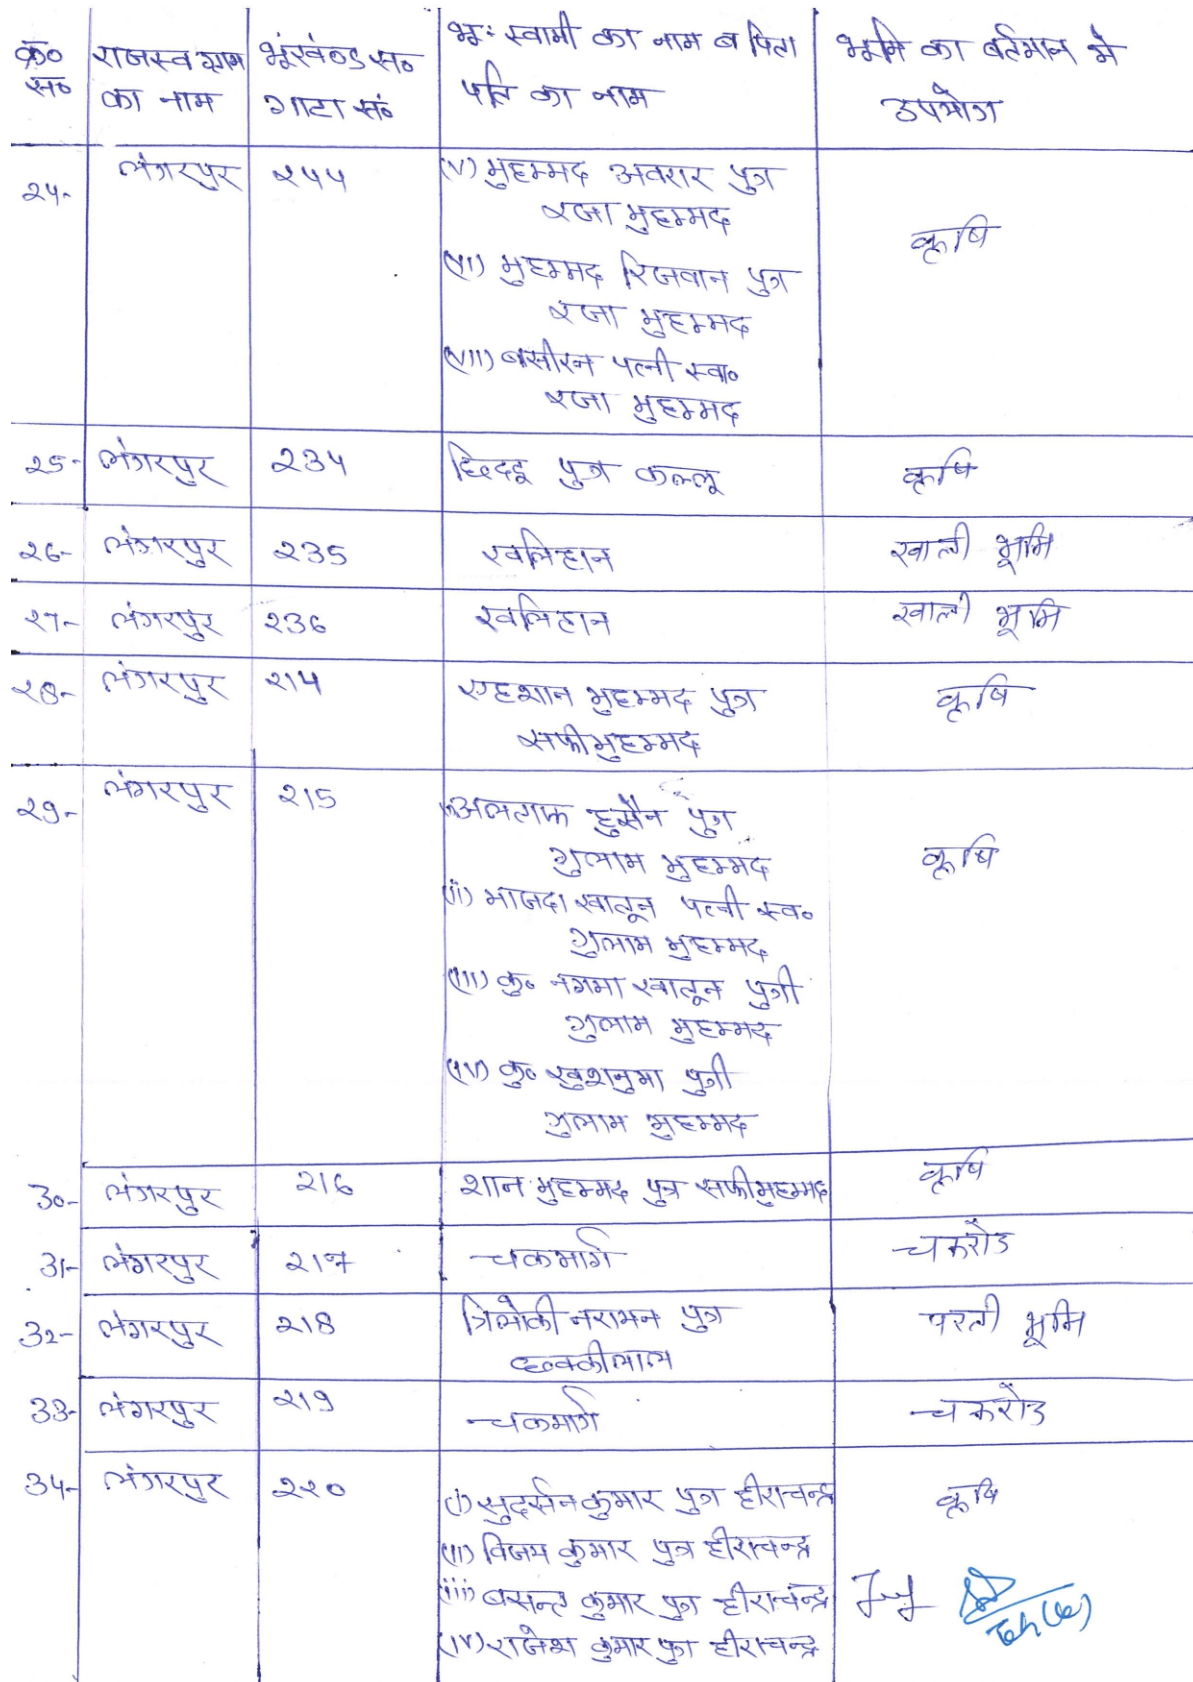 क्र० राजस्व ग्राम भूखंण्ड स० भू: स्वामी का नाम व पिता भूमि का वर्तमान मे
स० का नाम गाटा सं० पति का नाम उपभोग
24- लंगरपुर २44 (v) मुहम्मद अवरार पुत्र
रजा मुहम्मद
कृषि
(vi) मुहम्मद रिजवान पुत्र
रजा मुहम्मद
(vii) बसीरन पत्नी स्व०
रजा मुहम्मद
25- लंगरपुर 234 पुत्र कल्लू कृषि
26- लंगरपुर 235 खलिहान खाली भूमि
27- लंगरपुर 236 खलिहान खाली भूमि
28- लंगरपुर 214 एहशान मुहम्मद पुत्र कृषि
सफीमुहम्मद
29- लंगरपुर 215 अलताफ हुसैन पुत्र
गुलाम मुहम्मद कृषि
(ii) माजदा खातून पत्नी स्व०
गुलाम मुहम्मद
(iii) कु० नगमा खातून पुत्री
गुलाम मुहम्मद
(iv) कु० खुशनुमा पुत्री
गुलाम मुहम्मद
30- लंगरपुर 216 शान मुहम्मद पुत्र सफीमुहम्मद कृषि
31- लंगरपुर 217 चकमार्ग चकरोड
32- लंगरपुर 218 त्रिलोकी नरायन पुत्र परती भूमि
छक्कीलाल
33- लंगरपुर 219 चकमार्ग चकरोड
34- लंगरपुर 220 (i) सुदर्सन कुमार पुत्र हीराचन्द्र कृषि
(ii) विजय कुमार पुत्र हीराचन्द्र
(iii) बसन्त कुमार पुत्र हीराचन्द्र
(iv) राजेश कुमार पुत्र हीराचन्द्र